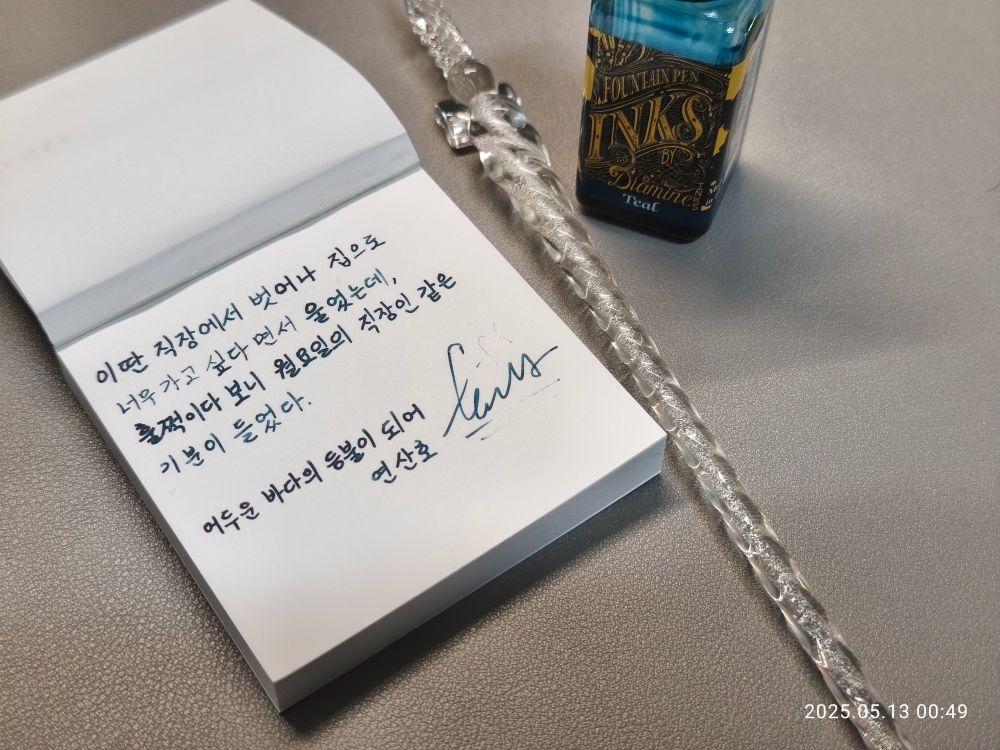 이딴 직장에서 벗어나 집으로
너무 가고 싶다 면서 울었는데,
훌쩍이다 보니 월요일의 직장인 같은
기분이 들었다.
어두운 바다의 등불이 되어
연산호
FOUNTAIN PEN
INKS
BY
Diamine
Teal
2025.05.13 00:49